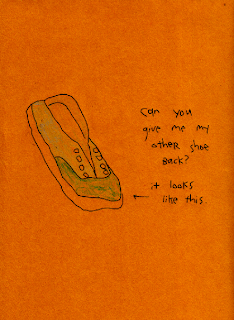 can you
give me my
other shoe
Back?
it looks
like this.